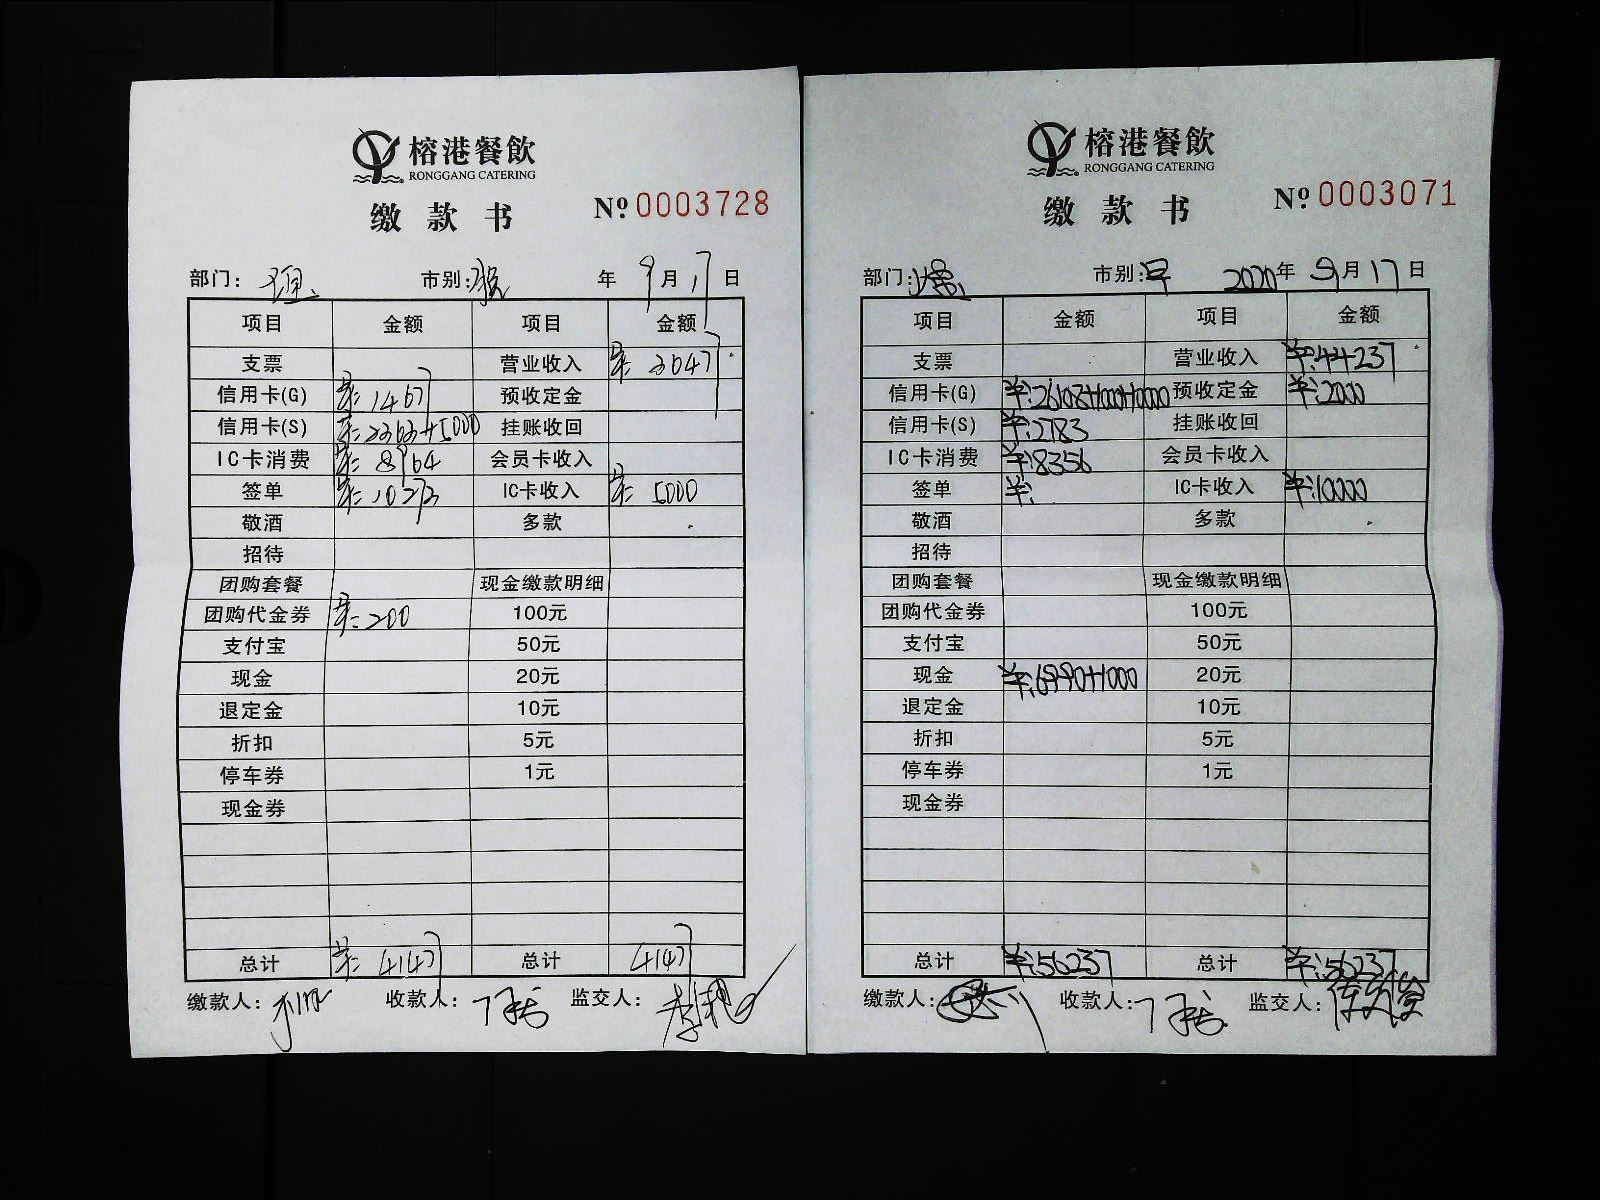 榕港餐飲
RONGGANG CATERING
缴款书
Nº 0003728
部门: 市别: 年 9月17日
项目 金额 项目 金额
支票 营业收入
信用卡(G) ¥:1467 预收定金
信用卡(S) 挂账收回
IC卡消费 会员卡收入
签单 ¥:10273 IC卡收入 ¥:5000
敬酒 多款
招待
团购套餐 现金缴款明细
团购代金券 ¥:200 100元
支付宝 50元
现金 20元
退定金 10元
折扣 5元
停车券 1元
现金券
总计 总计
缴款人: 收款人: 监交人:
榕港餐飲
RONGGANG CATERING
缴款书
Nº 0003071
部门: 市别:早 2020年 9月17日
项目 金额 项目 金额
支票 营业收入 ¥:44237
信用卡(G) ¥:26108+1000+10000 预收定金 ¥:2000
信用卡(S) ¥:2783 挂账收回
IC卡消费 ¥:8356 会员卡收入
签单 ¥: IC卡收入 ¥:10000
敬酒 多款
招待
团购套餐 现金缴款明细
团购代金券 100元
支付宝 50元
现金 ¥:6990+1000 20元
退定金 10元
折扣 5元
停车券 1元
现金券
总计 ¥:56237 总计 ¥:56237
缴款人: 收款人: 监交人: